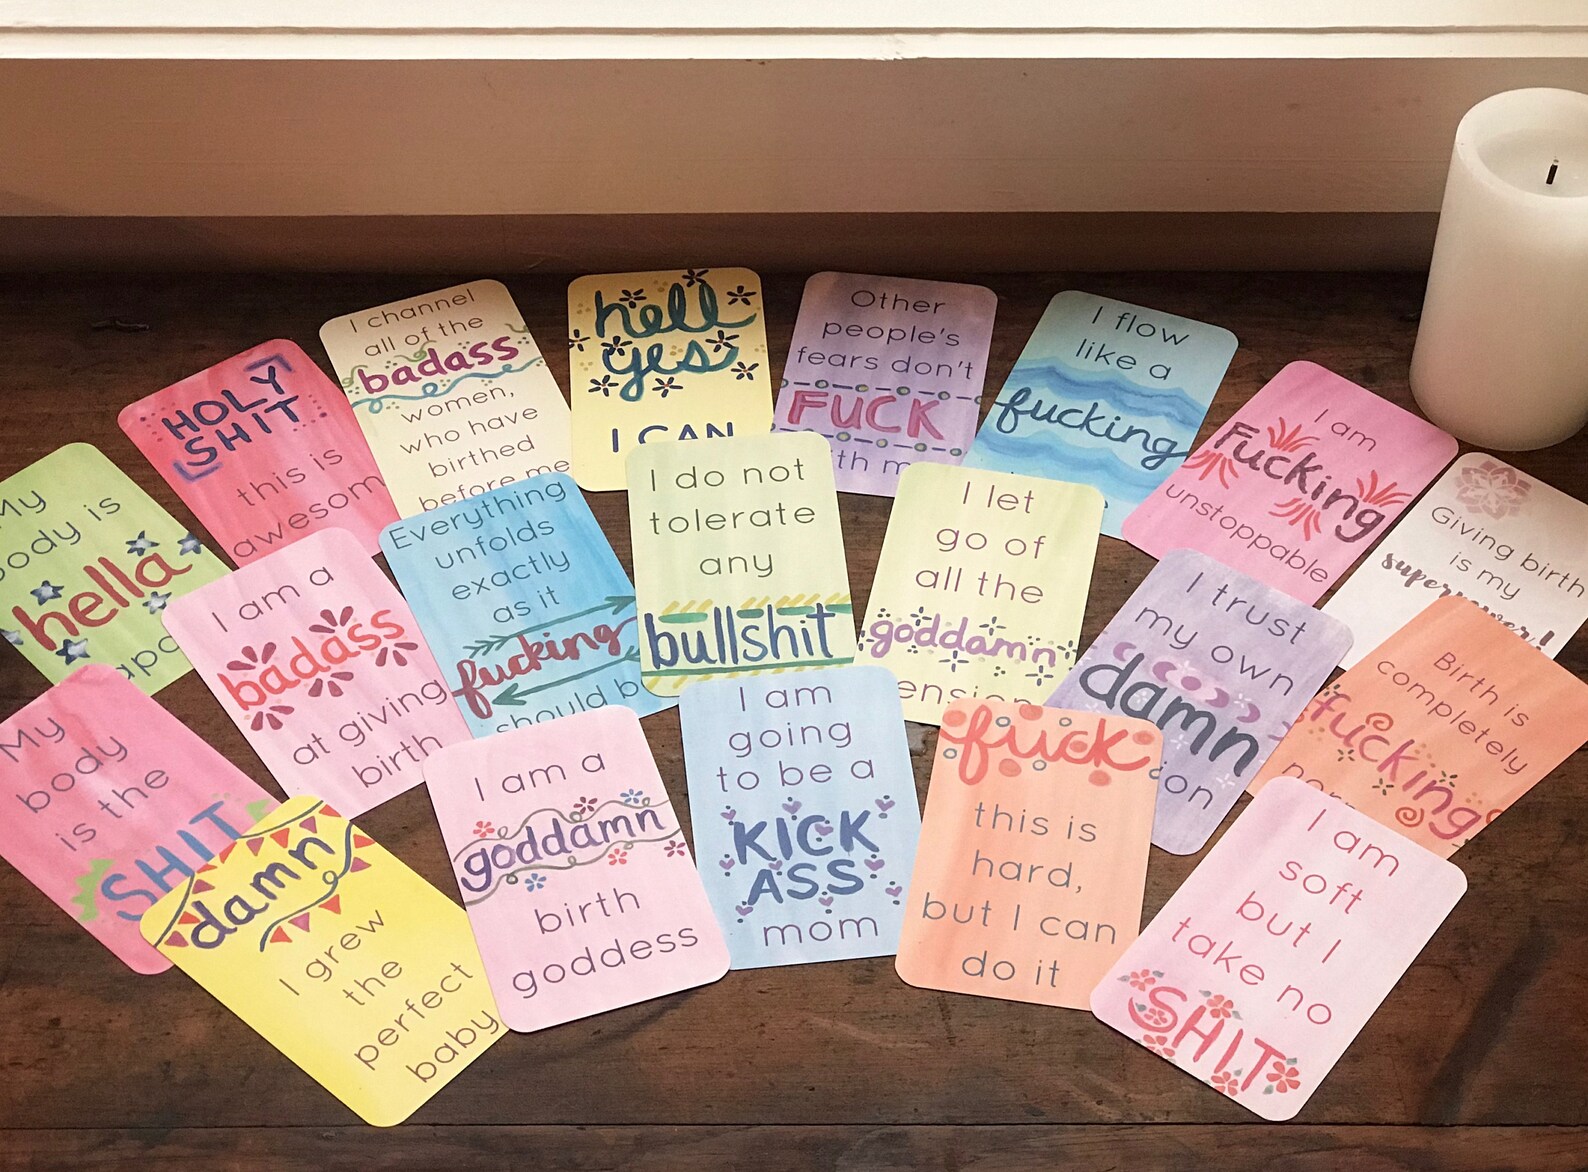 HOLY
SHIT
this is
I channel
all of the
badass
women,
who have
birthed
before me
hell
yes
I CAN
Other
people's
fears don't
FUCK
I flow
like a
fucking
I am
Fucking
unstoppable
Giving birth
is my
superpower!
My
body is
hella
I am a
badass
at giving
birth
Everything
unfolds
exactly
as it
fucking
should
I do not
tolerate
any
bullshit
I let
go of
all the
goddamn
I trust
my own
damn
Birth is
completely
fucking
My
body
is the
SHIT
damn
I grew
the
perfect
baby
I am a
goddamn
birth
goddess
I am
going
to be a
KICK
ASS
mom
fuck
this is
hard,
but I can
do it
I am
soft
but I
take no
SHIT